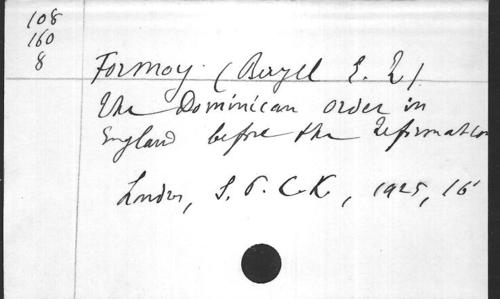 108
160
8
Formoy (Beryl E. R)
The Dominican order in
England before the Reformation
London, S. P. C. K, 1925, 16°